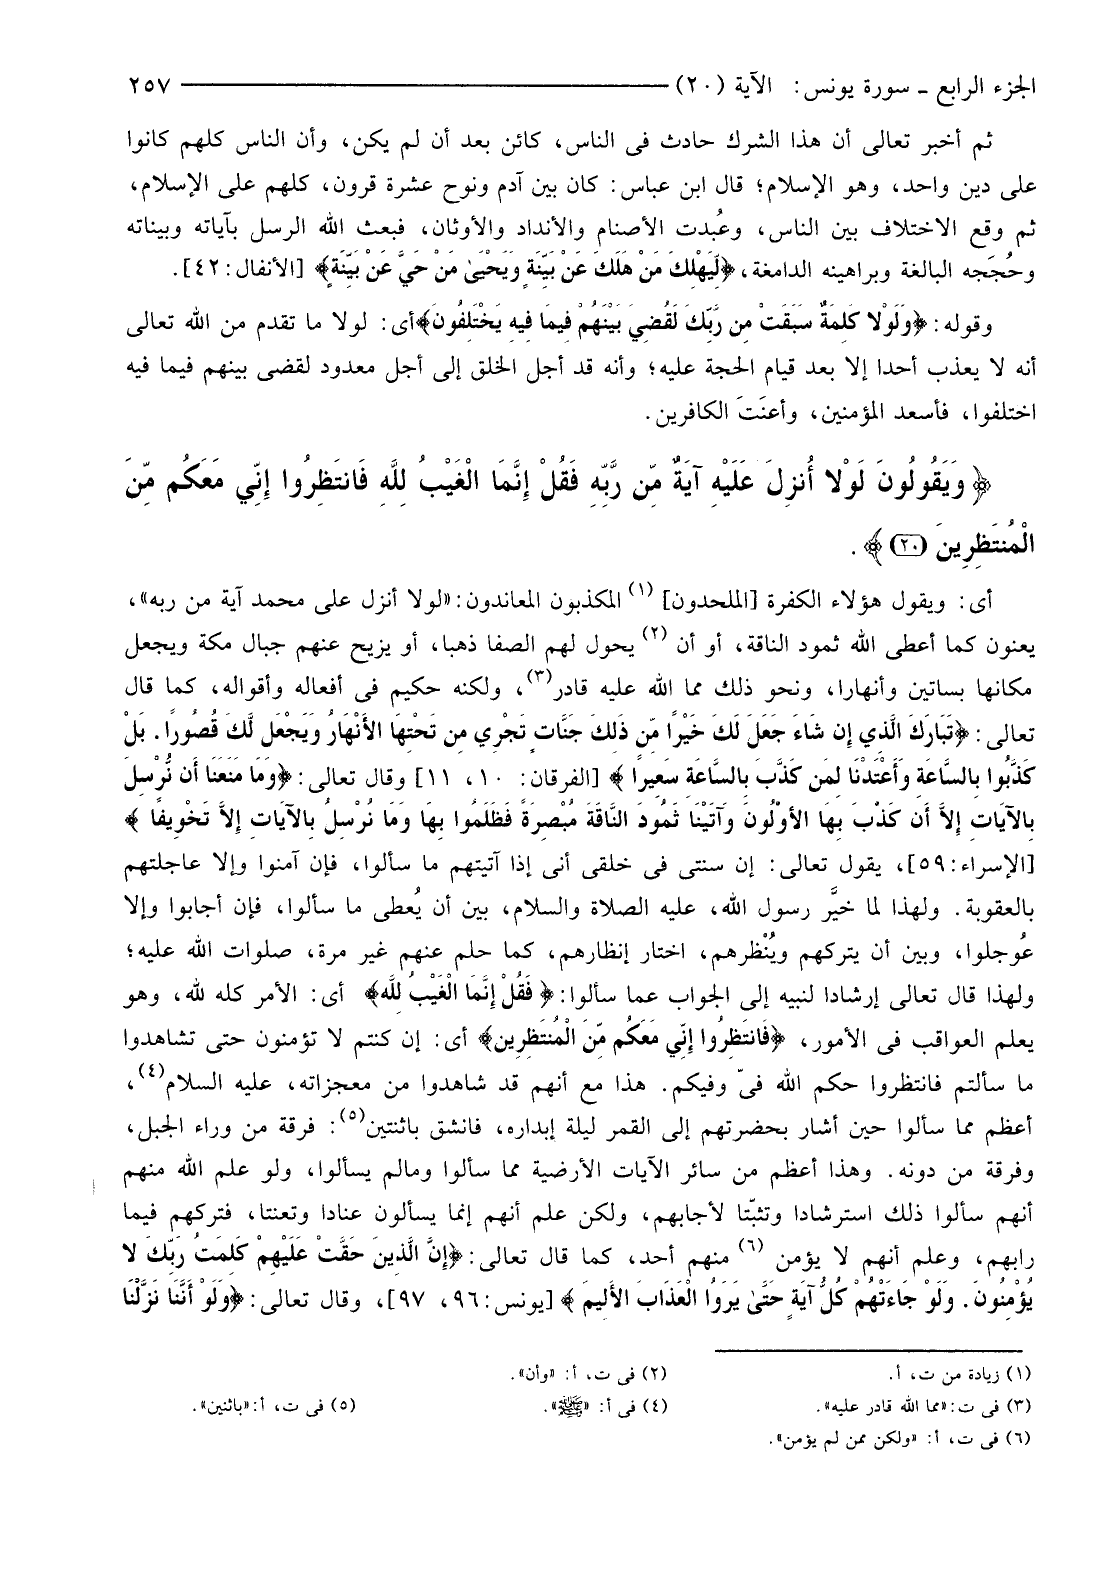 الجزء الرابع ـ سورة يونس: الآية (٢٠) ٢٥٧
ثم أخبر تعالى أن هذا الشرك حادث فى الناس، كائن بعد أن لم يكن، وأن الناس كلهم كانوا
على دين واحد، وهو الإسلام؛ قال ابن عباس: كان بين آدم ونوح عشرة قرون، كلهم على الإسلام،
ثم وقع الاختلاف بين الناس، وعُبدت الأصنام والأنداد والأوثان، فبعث الله الرسل بآياته وبيناته
وحُجَجه البالغة وبراهينه الدامغة، ﴿لِيَهْلِكَ مَنْ هَلَكَ عَنْ بَيِّنَةٍ وَيَحْيَىٰ مَنْ حَيَّ عَنْ بَيِّنَةٍ﴾ [الأنفال:٤٢].
وقوله: ﴿وَلَوْلا كَلِمَةٌ سَبَقَتْ مِن رَّبِّكَ لَقُضِيَ بَيْنَهُمْ فِيمَا فِيهِ يَخْتَلِفُونَ﴾أى: لولا ما تقدم من الله تعالى
أنه لا يعذب أحدا إلا بعد قيام الحجة عليه؛ وأنه قد أجل الخلق إلى أجل معدود لقضى بينهم فيما فيه
اختلفوا، فأسعد المؤمنين، وأعنَتَ الكافرين.
﴿وَيَقُولُونَ لَوْلا أُنزِلَ عَلَيْهِ آيَةٌ مِّن رَّبِّهِ فَقُلْ إِنَّمَا الْغَيْبُ لِلَّهِ فَانتَظِرُوا إِنِّي مَعَكُم مِّنَ
الْمُنتَظِرِينَ (٢٠)﴾ .
أى: ويقول هؤلاء الكفرة [الملحدون] (١) المكذبون المعاندون:«لولا أنزل على محمد آية من ربه»،
يعنون كما أعطى الله ثمود الناقة، أو أن (٢) يحول لهم الصفا ذهبا، أو يزيح عنهم جبال مكة ويجعل
مكانها بساتين وأنهارا، ونحو ذلك مما الله عليه قادر(٣)، ولكنه حكيم فى أفعاله وأقواله، كما قال
تعالى: ﴿تَبَارَكَ الَّذِي إِن شَاءَ جَعَلَ لَكَ خَيْرًا مِّن ذَلِكَ جَنَّاتٍ تَجْرِي مِن تَحْتِهَا الأَنْهَارُ وَيَجْعَل لَّكَ قُصُورًا. بَلْ
كَذَّبُوا بِالسَّاعَةِ وَأَعْتَدْنَا لِمَن كَذَّبَ بِالسَّاعَةِ سَعِيرًا﴾ [الفرقان: ١٠، ١١] وقال تعالى: ﴿وَمَا مَنَعَنَا أَن نُّرْسِلَ
بِالآيَاتِ إِلاَّ أَن كَذَّبَ بِهَا الأَوَّلُونَ وَآتَيْنَا ثَمُودَ النَّاقَةَ مُبْصِرَةً فَظَلَمُوا بِهَا وَمَا نُرْسِلُ بِالآيَاتِ إِلاَّ تَخْوِيفًا﴾
[الإسراء:٥٩]، يقول تعالى: إن سنتى فى خلقى أنى إذا آتيتهم ما سألوا، فإن آمنوا وإلا عاجلتهم
بالعقوبة. ولهذا لما خيَّر رسول الله، عليه الصلاة والسلام، بين أن يُعطى ما سألوا، فإن أجابوا وإلا
عُوجلوا، وبين أن يتركهم ويُنْظرهم، اختار إنظارهم، كما حلم عنهم غير مرة، صلوات الله عليه؛
ولهذا قال تعالى إرشادا لنبيه إلى الجواب عما سألوا: ﴿فَقُلْ إِنَّمَا الْغَيْبُ لِلَّهِ﴾ أى: الأمر كله لله، وهو
يعلم العواقب فى الأمور، ﴿فَانتَظِرُوا إِنِّي مَعَكُم مِّنَ الْمُنتَظِرِين﴾ أى: إن كنتم لا تؤمنون حتى تشاهدوا
ما سألتم فانتظروا حكم الله فىّ وفيكم. هذا مع أنهم قد شاهدوا من معجزاته، عليه السلام(٤)،
أعظم مما سألوا حين أشار بحضرتهم إلى القمر ليلة إبداره، فانشق باثنتين(٥): فرقة من وراء الجبل،
وفرقة من دونه. وهذا أعظم من سائر الآيات الأرضية مما سألوا ومالم يسألوا، ولو علم الله منهم
أنهم سألوا ذلك استرشادا وتثبّتا لأجابهم، ولكن علم أنهم إنما يسألون عنادا وتعنتا، فتركهم فيما
رابهم، وعلم أنهم لا يؤمن (٦) منهم أحد، كما قال تعالى: ﴿إِنَّ الَّذِينَ حَقَّتْ عَلَيْهِمْ كَلِمَتُ رَبِّكَ لا
يُؤْمِنُونَ. وَلَوْ جَاءَتْهُمْ كُلُّ آيَةٍ حَتَّىٰ يَرَوُا الْعَذَابَ الأَلِيمَ﴾ [يونس:٩٦، ٩٧]، وقال تعالى: ﴿وَلَوْ أَنَّنَا نَزَّلْنَا
(١) زيادة من ت، أ. (٢) فى ت، أ: «وأن».
(٣) فى ت:«مما الله قادر عليه». (٤) فى أ: «ﷺ». (٥) فى ت، أ:«باثنين».
(٦) فى ت، أ: «ولكن ممن لم يؤمن».